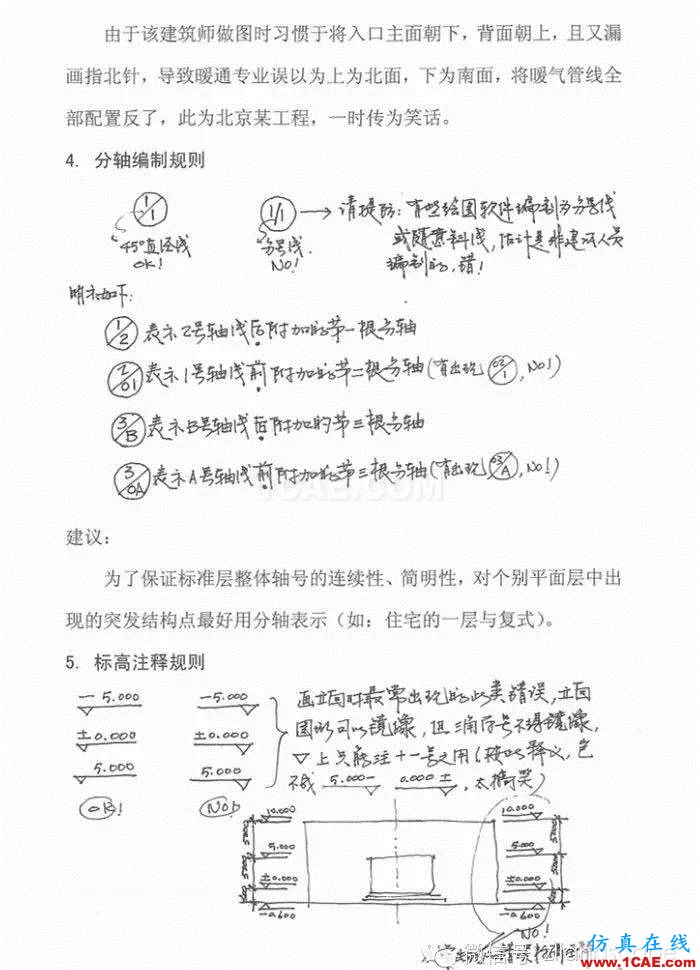 由于该建筑师做图时习惯于将入口主面朝下，背面朝上，且又漏
画指北针，导致暖通专业误以为上为北面，下为南面，将暖气管线全
部配置反了，此为北京某工程，一时传为笑话。
4. 分轴编制规则
1/1 1/1 → 请提防：有些绘图软件编制为分号线
45°直径线 分号线 或随意斜线，估计是非建筑人员
OK! NO! 编制的，错！
明示如下：
1/2 表示2号轴线后附加的第一根分轴
2/01 表示1号轴线前附加的第二根分轴(有出现 02/1, NO!)
3/B 表示B号轴线后附加的第三根分轴
3/0A 表示A号轴线前附加的第三根分轴(有出现 03/A, NO!)
1CAE.COM
建议：
为了保证标准层整体轴号的连续性、简明性，对个别平面层中出
现的突发结构点最好用分轴表示（如：住宅的一层与复式）。
5. 标高注释规则
－5.000 －5.000 画立面时最常出现的此类错误，立面
±0.000 ±0.000 图形可以镜像，但三角符号不得镜像，
5.000 5.000 ▽上只能注+－号之用(按此释义，岂
OK! NO! 不成 5.000－ 0.000±，太搞笑)
10.000 10.000
5.000 5.000
±0.000 ±0.000
－0.600 －0.600
NO!
微信号
仿真在线
www.1CAE.com